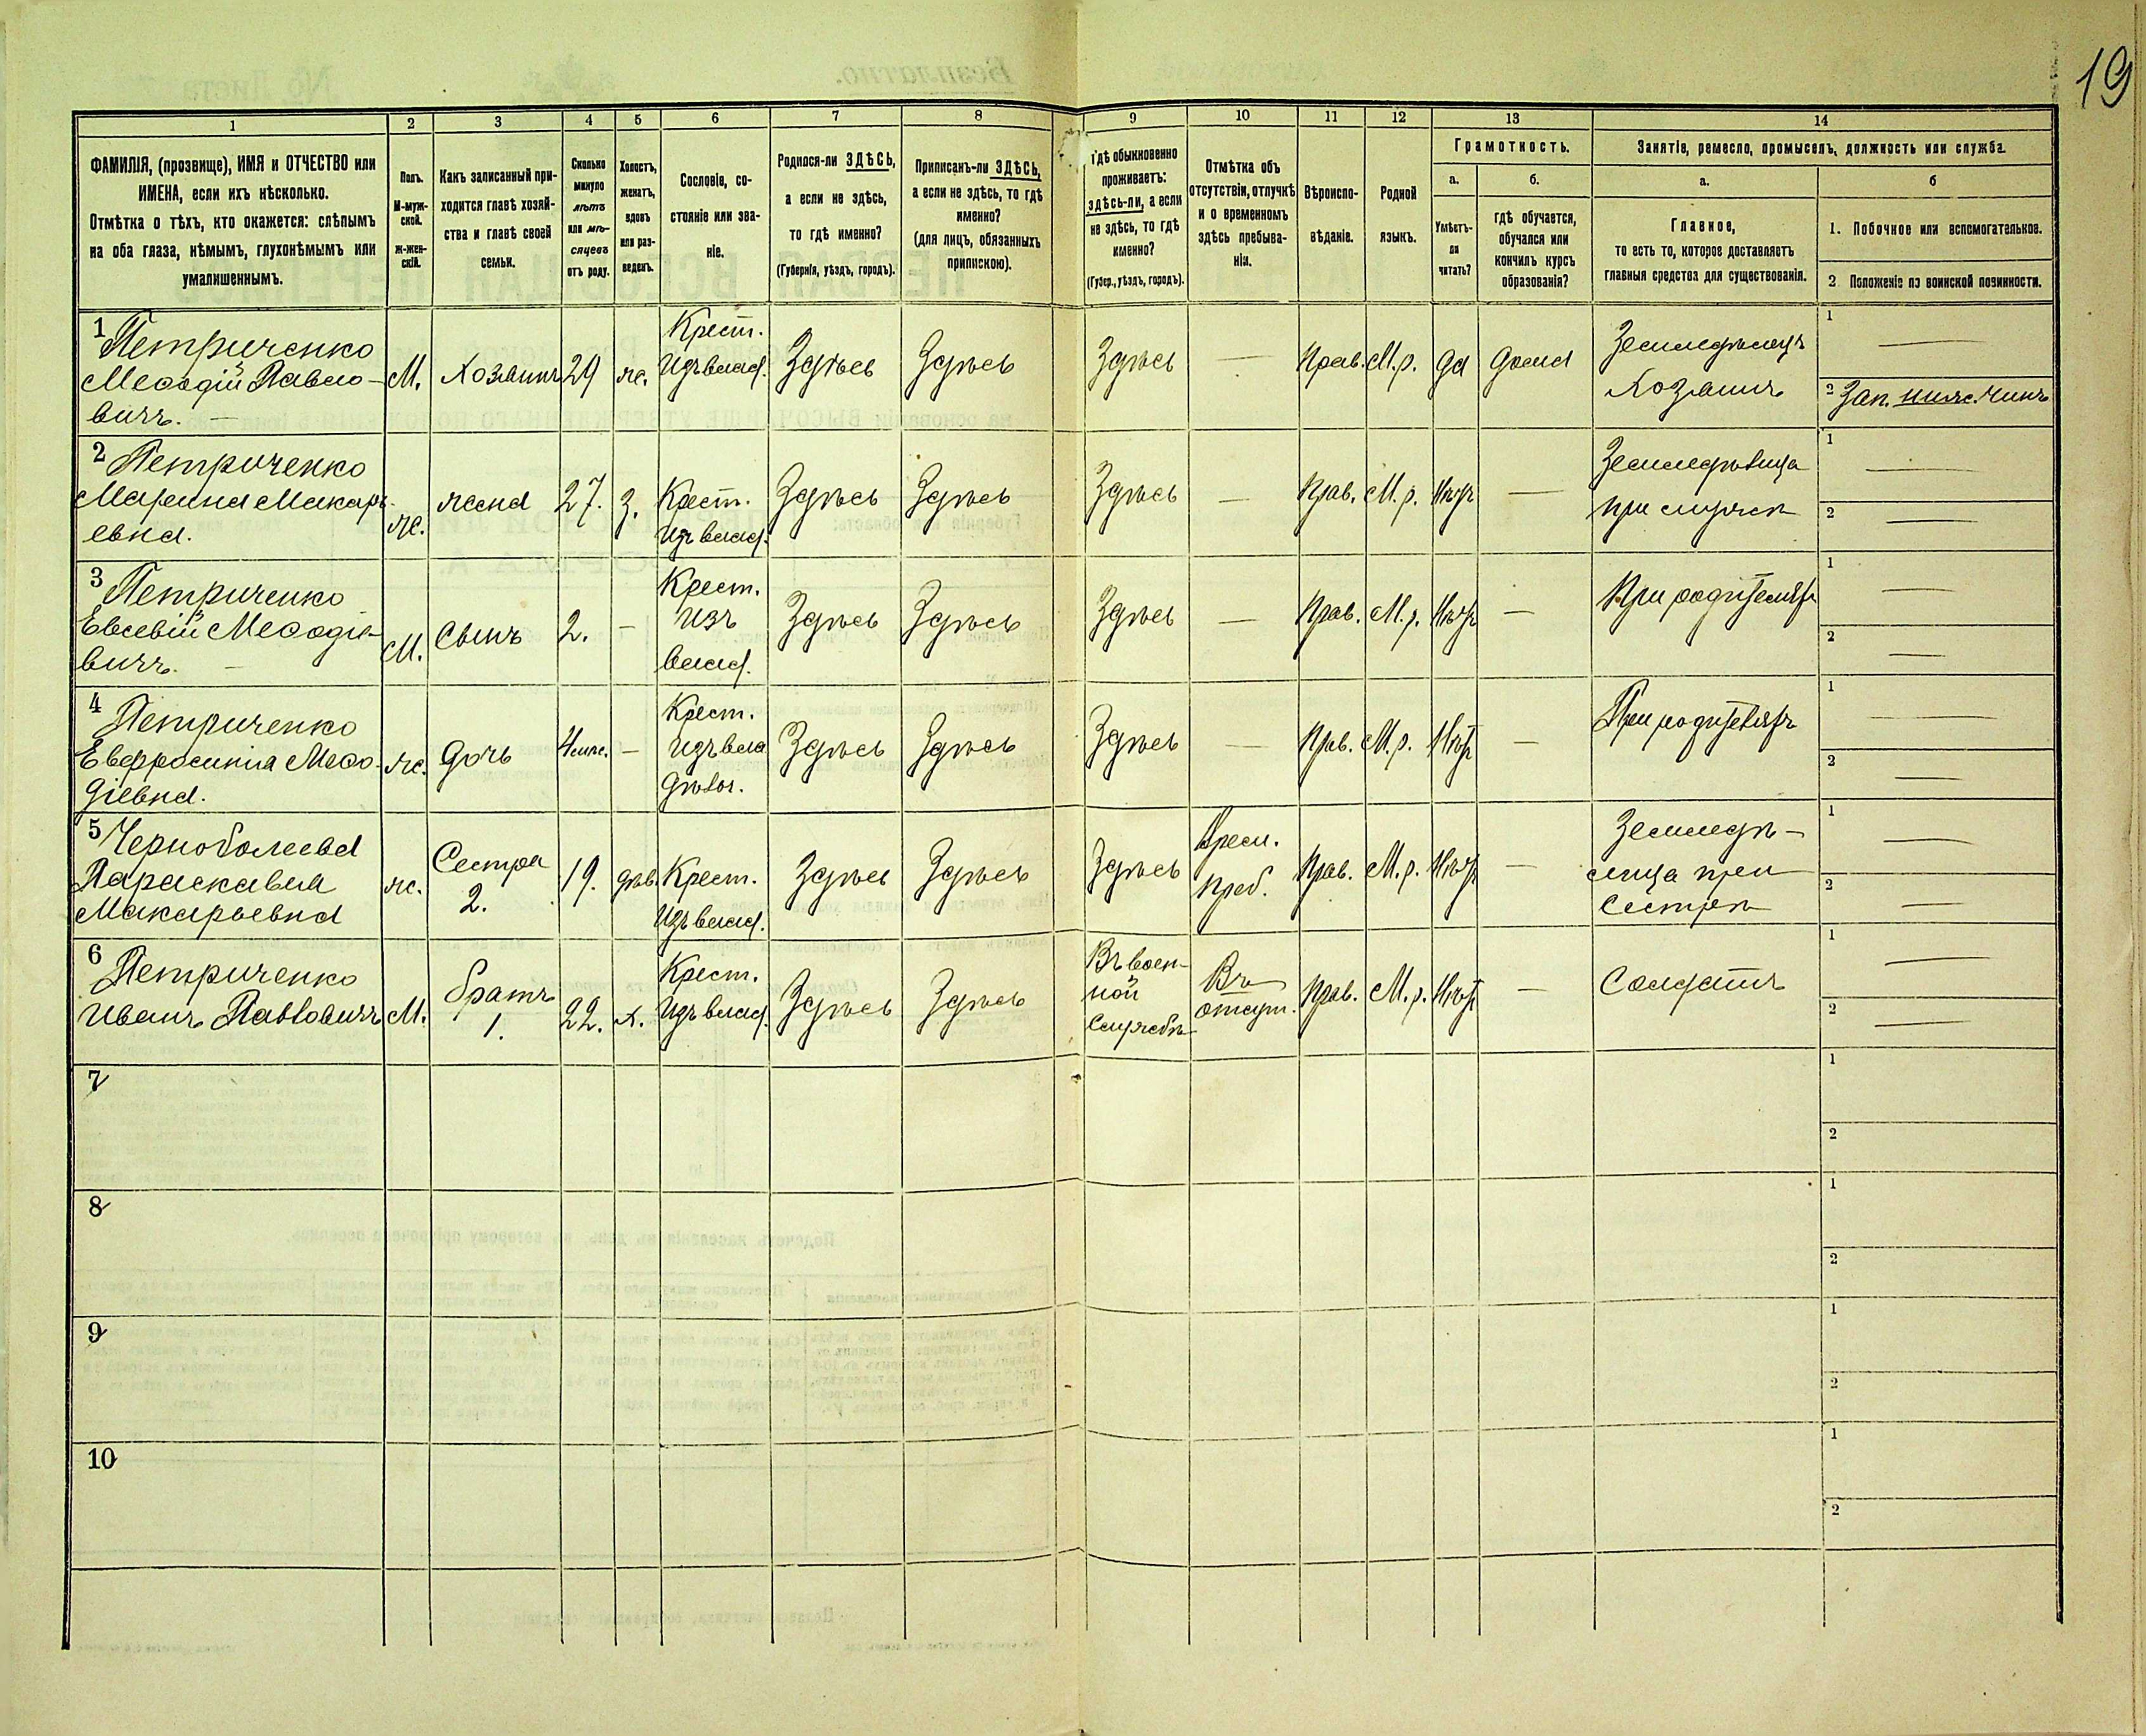 19
1 2 3 4 5 6 7 8 9 10 11 12 13 14
ФАМИЛІЯ, (прозвище), ИМЯ и ОТЧЕСТВО или
ИМЕНА, если ихъ нѣсколько.
Отмѣтка о тѣхъ, кто окажется: слѣпымъ
на оба глаза, нѣмымъ, глухонѣмымъ или
умалишеннымъ.
Полъ.
М-муж-
ской.
ж-жен-
скій.
Какъ записанный при-
ходится главѣ хозяй-
ства и главѣ своей
семьи.
Сколько
минуло
лѣтъ
или мѣ-
сяцевъ
отъ роду.
Холостъ,
женатъ,
вдовъ
или раз-
веденъ.
Сословіе, со-
стояніе или зва-
ніе.
Родился-ли ЗДѢСЬ,
а если не здѣсь,
то гдѣ именно?
(Губернія, уѣздъ, городъ).
Приписанъ-ли ЗДѢСЬ,
а если не здѣсь, то гдѣ
именно?
(для лицъ, обязанныхъ
припискою).
Гдѣ обыкновенно
проживаетъ:
здѣсь-ли, а если
не здѣсь, то гдѣ
именно?
(Губер., уѣздъ, городъ).
Отмѣтка объ
отсутствіи, отлучкѣ
и о временномъ
здѣсь пребыва-
ніи.
Вѣроиспо-
вѣданіе.
Родной
языкъ.
Грамотность.
а.
Умѣетъ-
ли
читать?
б.
гдѣ обучается,
обучался или
кончилъ курсъ
образованія?
Занятіе, ремесло, промыселъ, должность или служба.
а.
Главное,
то есть то, которое доставляетъ
главныя средства для существованія.
б
1. Побочное или вспомогательное.
2 Положеніе по воинской повинности.
1 Петриченко
Меѳодій Павло-
вичъ. —
М.
Хозяинъ
29
ж.
Крест.
Изъ влад.
Здѣсь
Здѣсь
Здѣсь
—
Прав.
М.р.
Да
Дома
Земледѣлецъ
Хозяинъ
1 —
2 Зап. нижс. чинъ
2 Петриченко
Марина Макарь-
евна.
ж.
жена
27.
З.
Крест.
Изъ влад.
Здѣсь
Здѣсь
Здѣсь
—
Прав.
М. р.
Нѣтъ
—
Земледѣлица
при мужѣ
1 —
2 —
3 Петриченко
Евсевій Меѳодіе-
вичъ. —
М.
Сынъ
2.
—
Крест.
Изъ
влад.
Здѣсь
Здѣсь
Здѣсь
—
Прав.
М. р.
Нѣтъ
—
При родителяхъ
1 —
2 —
4 Петриченко
Евфросинія Меѳо-
діевна.
ж.
Дочь
4 мѣс.
—
Крест.
Изъ вла
дѣльч.
Здѣсь
Здѣсь
Здѣсь
—
Прав.
М. р.
Нѣтъ
—
При родителяхъ
1 —
2 —
5 Чернобаева
Параскавия
Макарьевна
ж.
Сестра
2.
19.
дѣв.
Крест.
Изъ влад.
Здѣсь
Здѣсь
Здѣсь
Врем.
преб.
Прав.
М. р.
Нѣтъ
—
Земледѣ-
лица при
Сестрѣ
1 —
2 —
6 Петриченко
Иванъ Павловичъ
М.
братъ
1.
22.
х.
Крест.
Изъ влад.
Здѣсь
Здѣсь
Въ воен-
ной
Службѣ
Въ
отсут.
Прав.
М. р.
Нѣтъ
—
Солдатъ
1 —
2 —
7
1
2
8
1
2
9
1
2
10
1
2